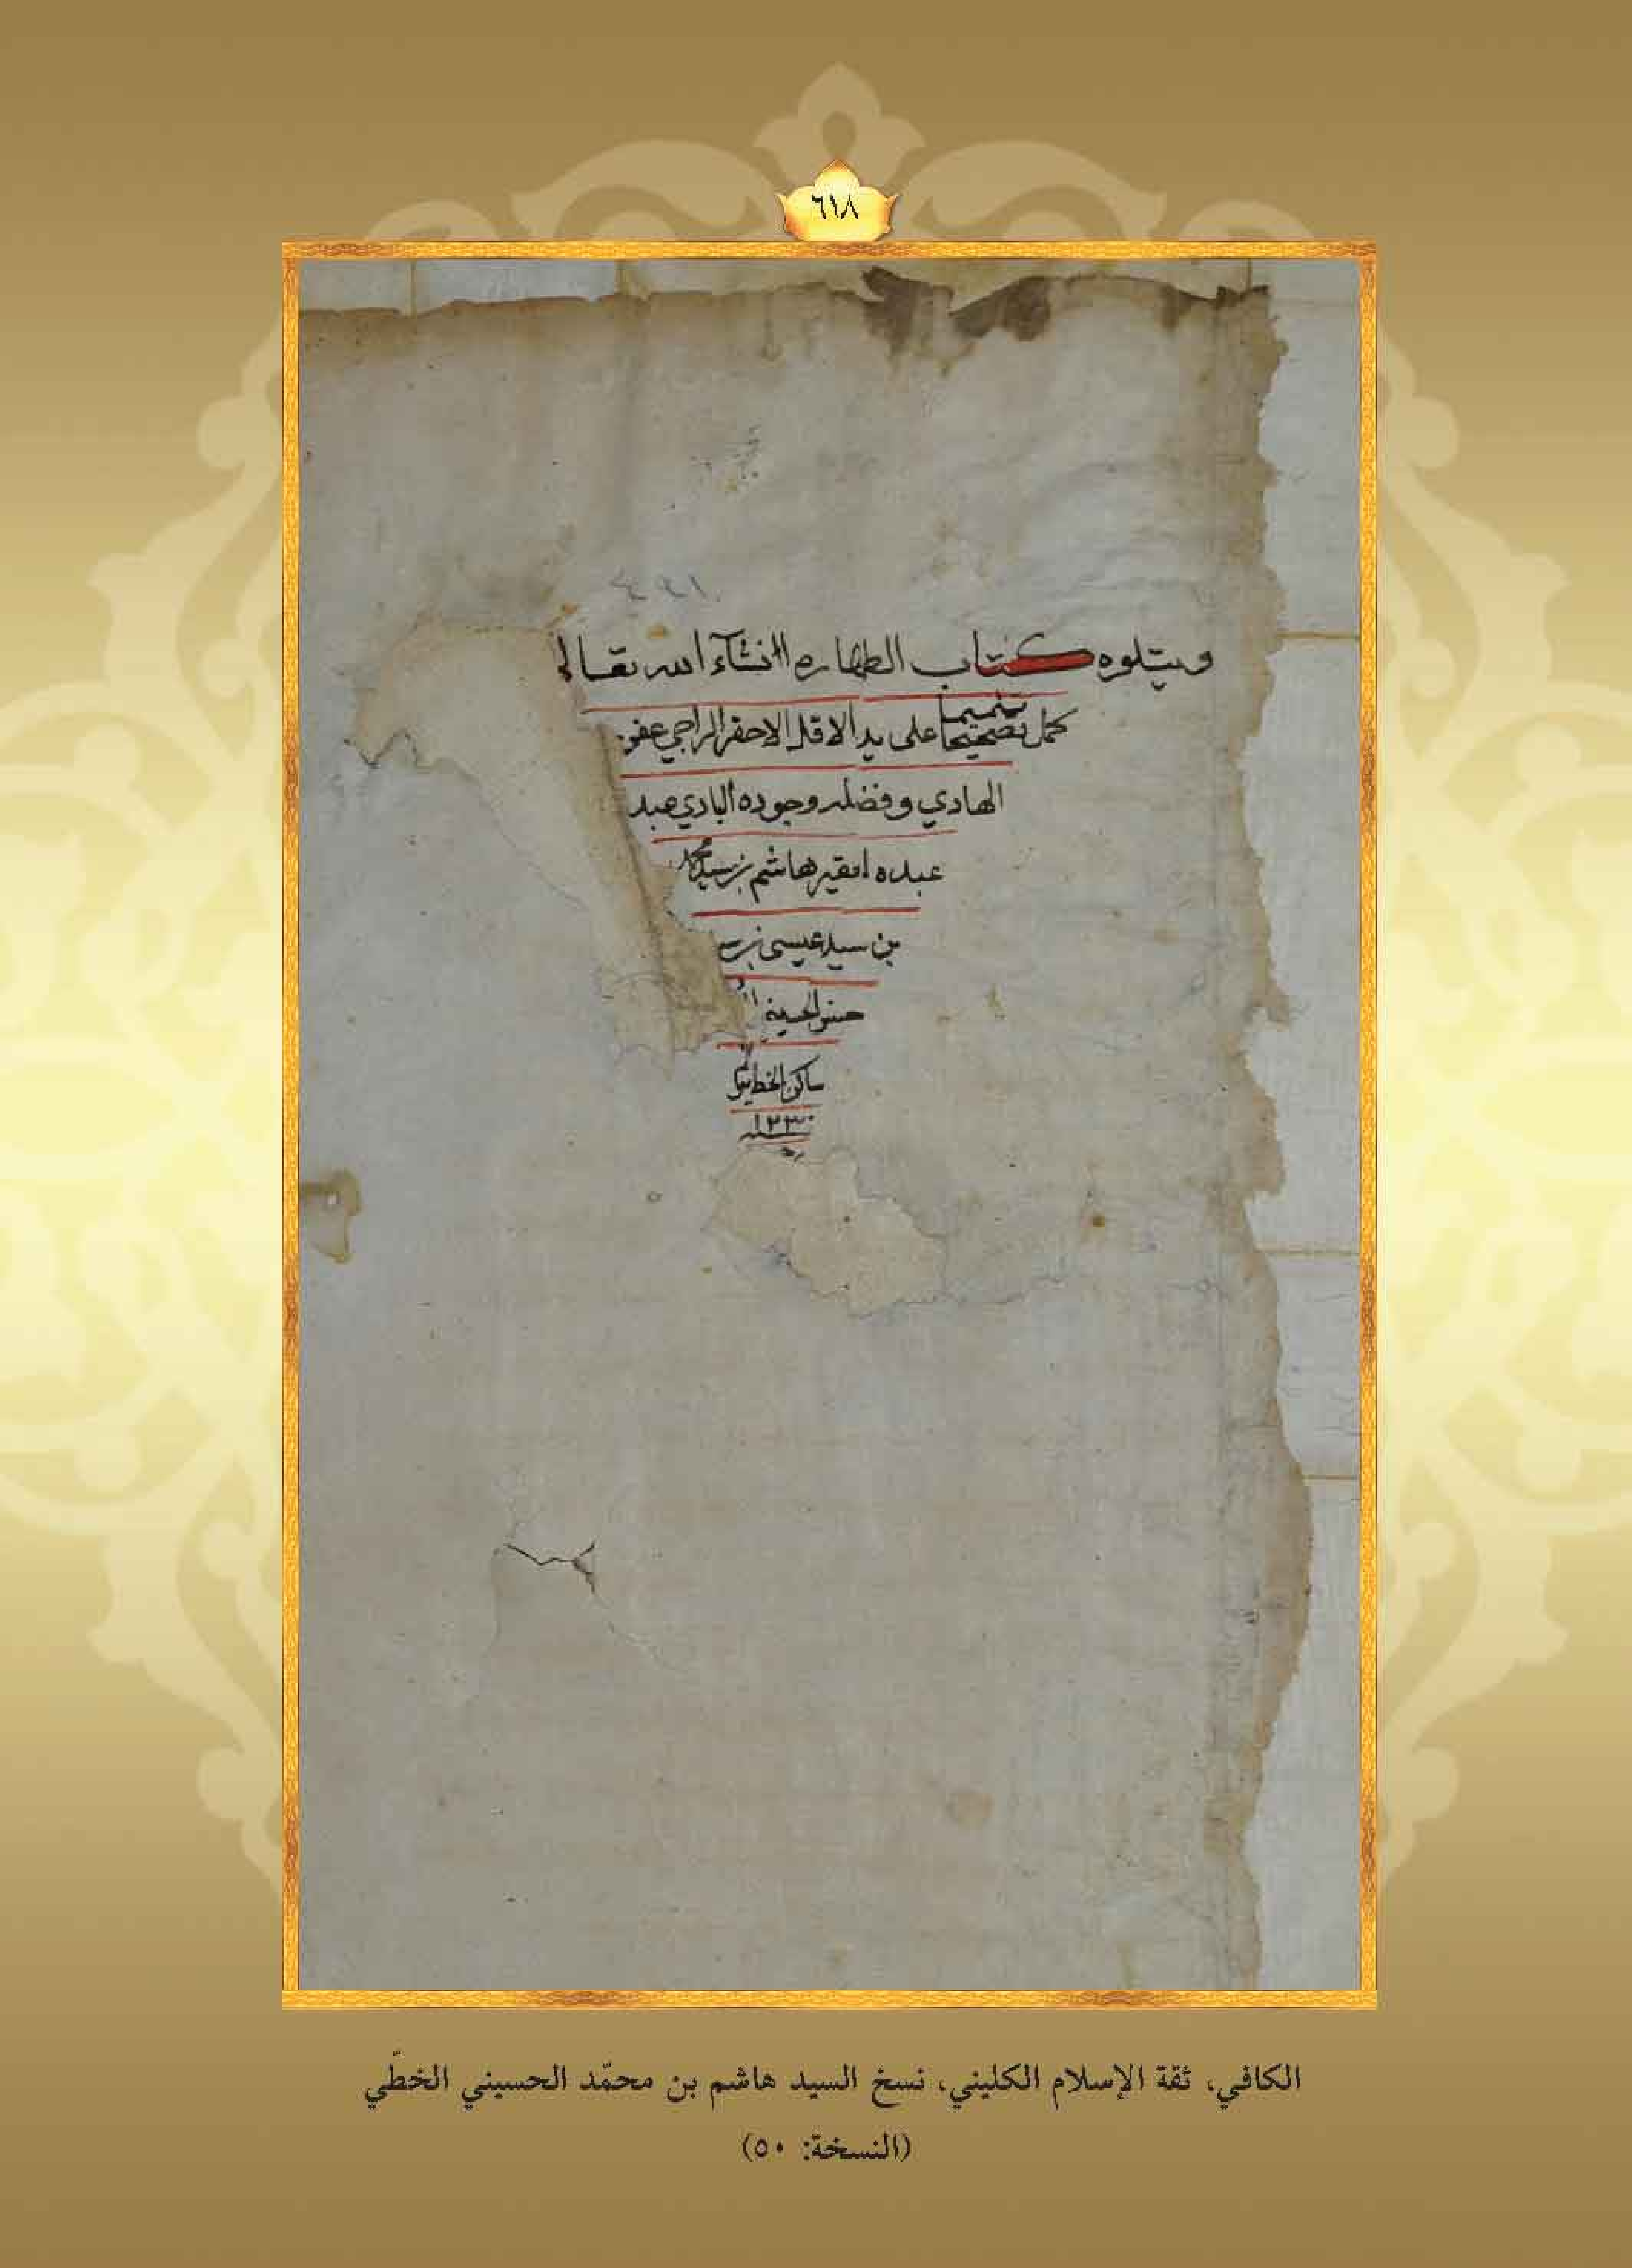 ٦١٨
ويتلوه كتاب الطهاره انشآء الله تعالى
تتميما
كمل تصحيحا على يد الاقل الاحقر الراجي عفو
الهادي وفضله وجوده البادي عبد
عبده افقير هاشم بن سيد محمد
بن سيد عيسى بن
حسن الحسيني
ساكن الخط
سنة ١٢٣٠
الكافي، ثقة الإسلام الكليني، نسخ السيد هاشم بن محمّد الحسيني الخطّي
(النسخة: ٥٠)